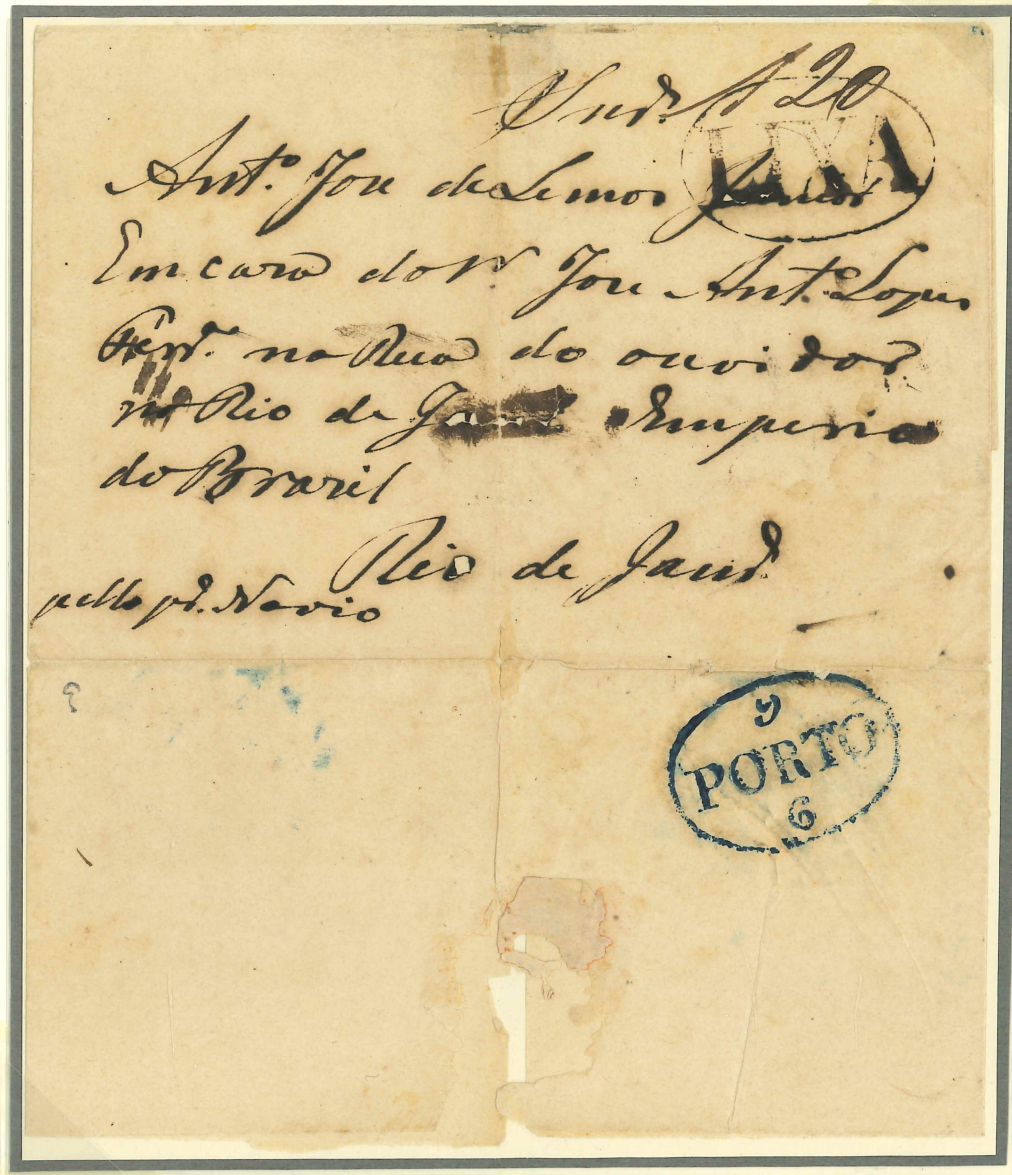 Snr. A 20
LIXA
Anto. Joze de Lemos
Em cara do Sr. Joze Anto. Lopes
na Rua do ouvidor
no Rio de Emperio
do Brazil
Rio de Janro.
pello pro. Navio
9
PORTO
6